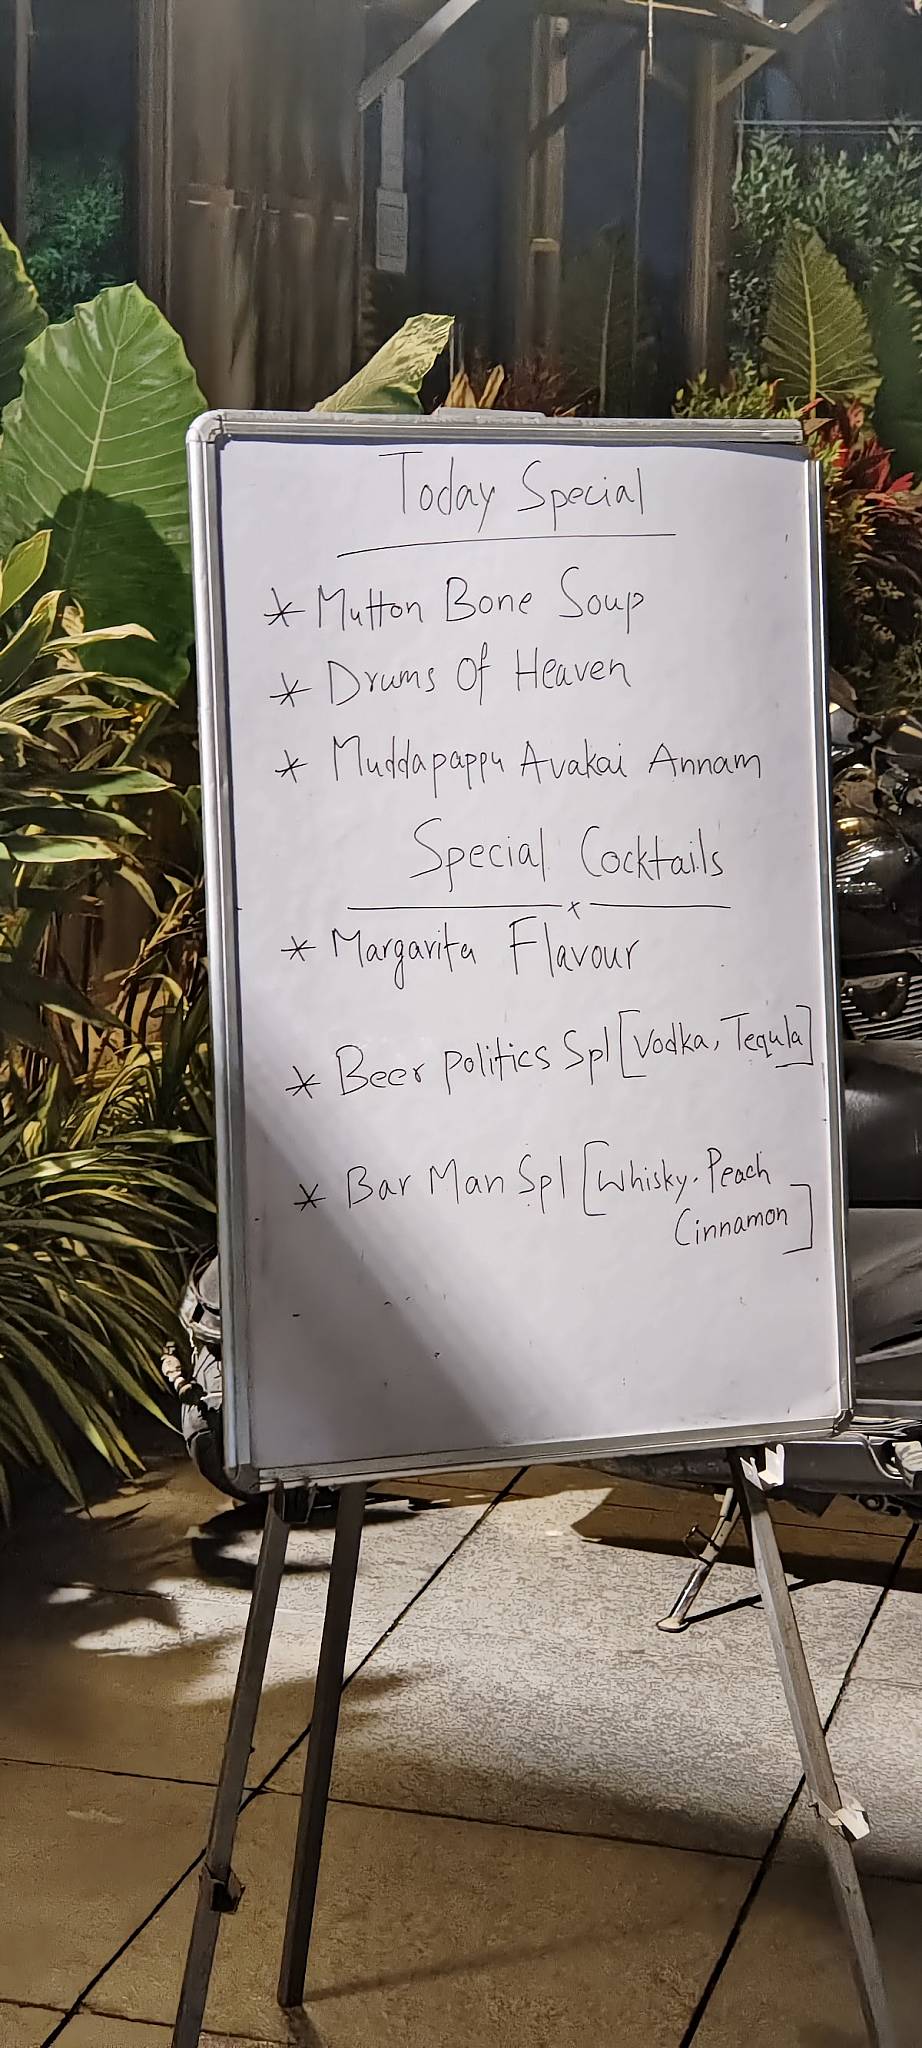 Today Special
* Mutton Bone Soup
* Drums Of Heaven
* Muddapappu Avakai Annam
Special Cocktails
x
* Margarita Flavour
* Beer politics Spl [Vodka, Tequla]
* Bar Man Spl [Whisky. Peach
Cinnamon]